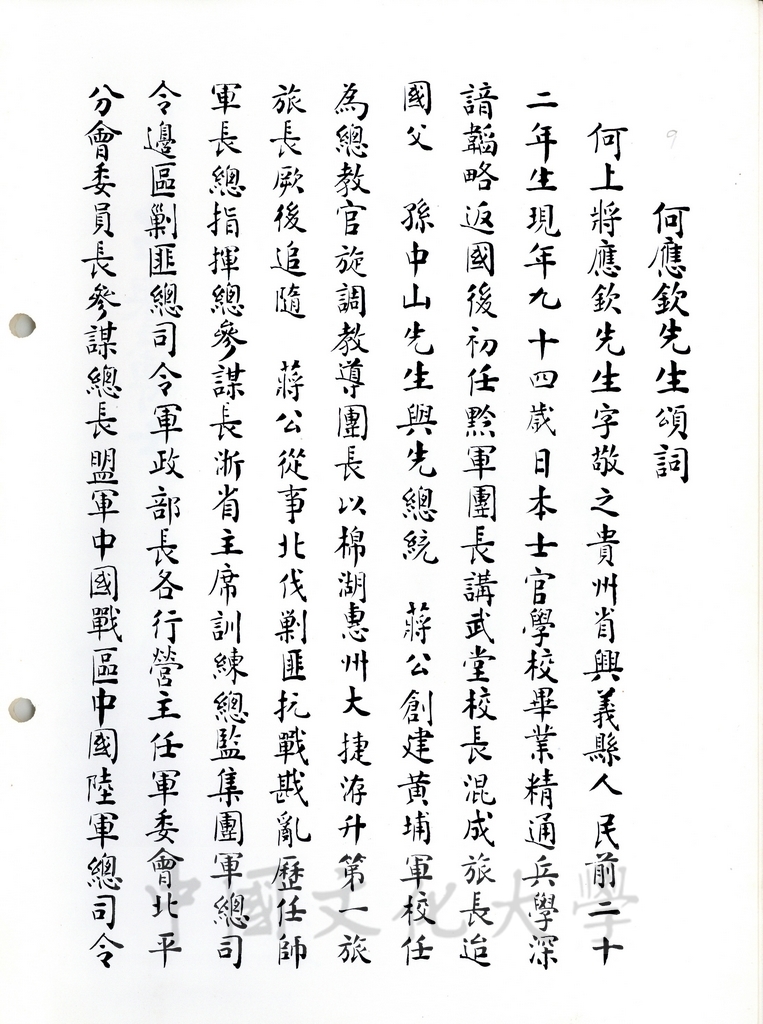 9
何應欽先生頌詞
何上將應欽先生字敬之貴州省興義縣人民前二十
二年生現年九十四歲日本士官學校畢業精通兵學深
諳韜略返國後初任黔軍團長講武堂校長混成旅長迨
國父　孫中山先生與先總統　蔣公創建黃埔軍校任
為總教官旋調教導團長以棉湖惠州大捷洊升第一旅
旅長厥後追隨　蔣公從事北伐剿匪抗戰戡亂歷任師
軍長總指揮總參謀長浙省主席訓練總監集團軍總司
令邊區剿匪總司令軍政部長各行營主任軍委會北平
分會委員長參謀總長盟軍中國戰區中國陸軍總司令
中國文化大學